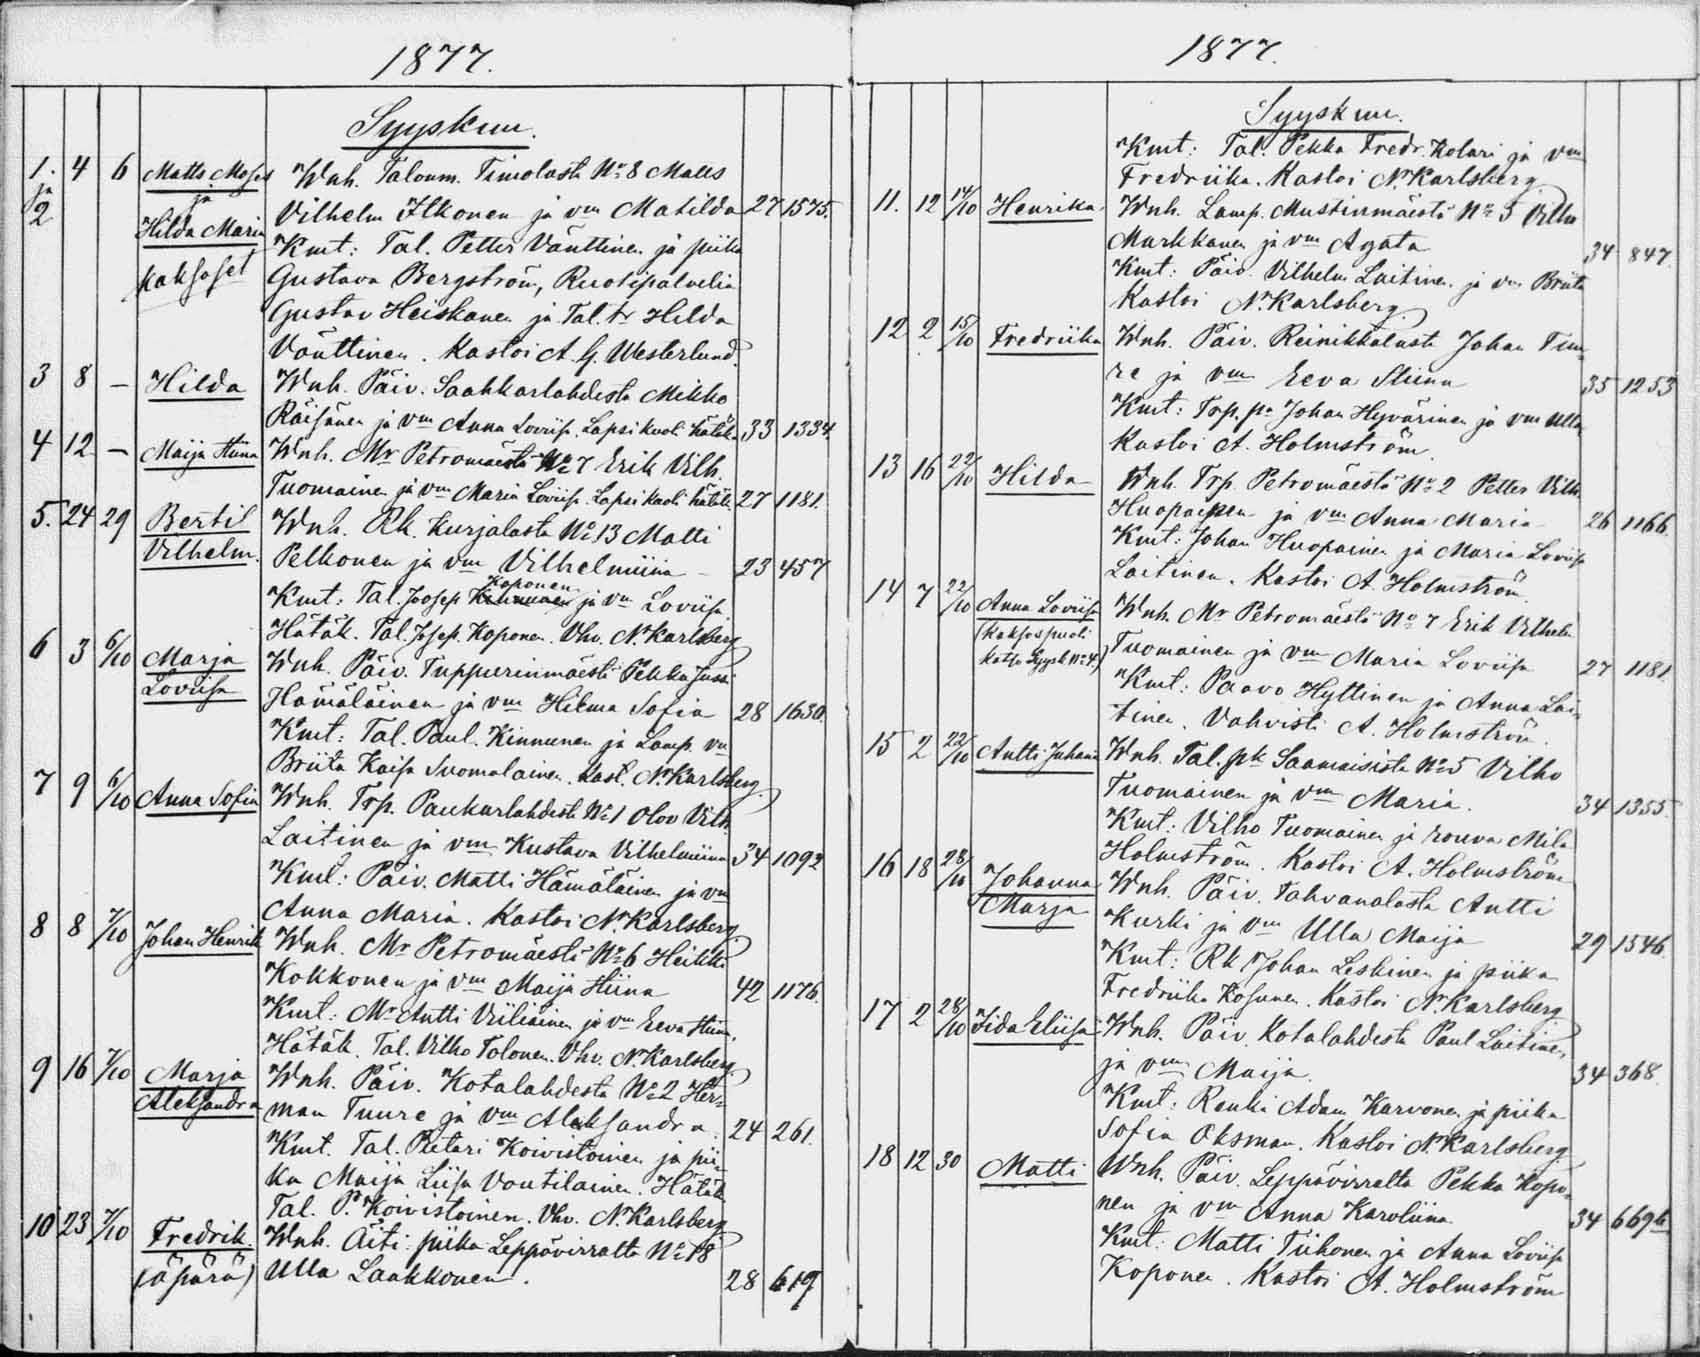 1877.
Syyskuu.
1. 4 6 Matts Moses Wnh. Taloum. Timolasta No 8 Matts
ja ja
2 Hilda Maria Vilhelm Ilkonen ja vm Matilda 27 1575.
Kmt: Tal. Petter Vänttinen ja piika
kaksoset Gustava Bergström, Ruotipalvelia
Gustav Heiskanen ja Tal. tr Hilda
Vänttinen. Kastoi A. G. Westerlund.
3 8 – Hilda Wnh. Päiv. Saahkarlahdesta Mikko
Räisänen ja vm Anna Loviisa. Lapsi kuoli hätäk. 33 1334.
4 12 – Maija Stiina Wnh. Mr Petromäestä No 7 Erik Vilh.
Tuomainen ja vm Maria Loviisa. Lapsi kuoli hätäk. 27 1181.
5. 24 29 Bertil Wnh. Rk. Kurjalasta No 13 Matti
Vilhelm. Pelkonen ja vm Vilhelmiina – 23 457
Koponen
Kmt: Tal. Joosep Kinnunen ja vm Loviisa
Hätäk. Tal. Josep. Koponen. Vhv. N. Karlsberg
6 3 6/10 Marja Wnh. Päiv. Tuppurinmäestä Pekka Jussi
Loviisa Hämäläinen ja vm Hilma Sofia 28 1630.
Kmt: Tal. Paul. Kinnunen ja Lamp. vm
Briita Kaisa Suomalainen. Kast. N. Karlsberg.
7 9 6/10 Anna Sofia Wnh. Trp. Paukarlahdesta No 1 Olov Vilh.
Laitinen ja vm Kustava Vilhelmiina 34 1092
Kmt: Päiv. Matti Hämäläinen ja vm
Anna Maria. Kastoi N. Karlsberg
8 8 7/10 Johan Henrik Wnh. Mr Petromäestä No 6 Heikki
Kokkonen ja vm Maija Stiina 42 1176.
Kmt: Mr Antti Viiliäinen ja vm Eeva Stiina.
Hätäk. Tal. Vilho Tolonen. Vhv. N. Karlsberg.
9 16 7/10 Marja Wnh. Päiv. Kotalahdesta No 2 Her-
Aleksandra man Tuure ja vm Aleksandra. 24 261.
Kmt. Tal. Pietari Koivistoinen ja pii-
ka Maija Liisa Voutilainen. Hätäk
Tal. P. Koivistoinen. Vhv. N. Karlsberg
10 23 7/10 Fredrik. Wnh. Äiti: piika Leppävirralta No 18
(äpärä) Ulla Laakkonen. 28 619
1877.
Syyskuu.
Kmt: Tal. Pekka Fredr. Kolari ja vm
Fredriika. Kastoi N. Karlsberg
11. 12 14/10 Henrika. Wnh. Lamp. Mustinmäestä No 5 Vilho
Markkanen ja vm Agata 34 847.
Kmt: Päiv. Vilhelm Laitinen ja vm Briita
Kastoi N. Karlsberg.
12 2 15/10 Fredriika Wnh. Päiv. Reinikkalasta Johan Tuu-
re ja vm Eeva Stiina 35 1253
Kmt: Trp. pa Johan Hyvärinen ja vm Ulla
Kastoi A. Holmström.
13 16 22/10 Hilda Wnh. Trp. Petromäestä No 2 Petter Vilh.
Huopainen ja vm Anna Maria 26 1166.
Kmt: Johan Huopainen ja Maria Loviisa
Laitinen. Kastoi A. Holmström.
14 7 22/10 Anna Loviisa Wnh. Mr Petromäestä No 7 Erik Vilhelm
(kaksospuoli Tuomainen ja vm Maria Loviisa 27 1181.
katso Syysk No 4.)
Kmt: Paavo Hyttinen ja Anna Lai-
tinen. Vahvisti A. Holmström.
15 2 22/10 Antti Juhana Wnh. Tal. pk Saamaisista No 5 Vilho
Tuomainen ja vm Maria. 34 1355.
Kmt: Vilho Tuomainen ja rouva Mila
Holmström. Kastoi A. Holmström
16 18 28/10 Johanna Wnh. Päiv. Tahvanalasta Antti
Marja Kurki ja vm Ulla Maija 29 1546.
Kmt: Rk Johan Leskinen ja piika
Fredriika Kosunen. Kastoi N. Karlsberg
17 2 28/10 Iida Eliisa Wnh. Päiv. Kotalahdesta Paul Laitinen
ja vm Maija. 34 368.
Kmt: Renki Adam Karvonen ja piika
Sofia Oksman. Kastoi N. Karlsberg
18 12 30 Matti Wnh. Päiv. Leppävirralta Pekka Kopo-
nen ja vm Anna Karoliina 34 669b
Kmt: Matti Tiihonen ja Anna Loviisa
Koponen. Kastoi A. Holmström